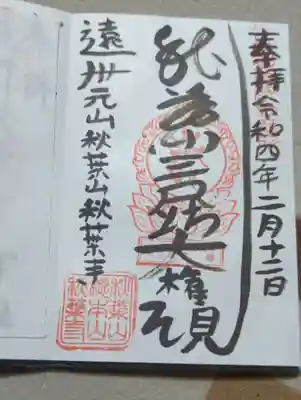 奉拝令和四年二月十二日
秋葉山三尺坊大権現
遠州元山秋葉山秋葉寺
秋葉山
総本山
秋葉寺